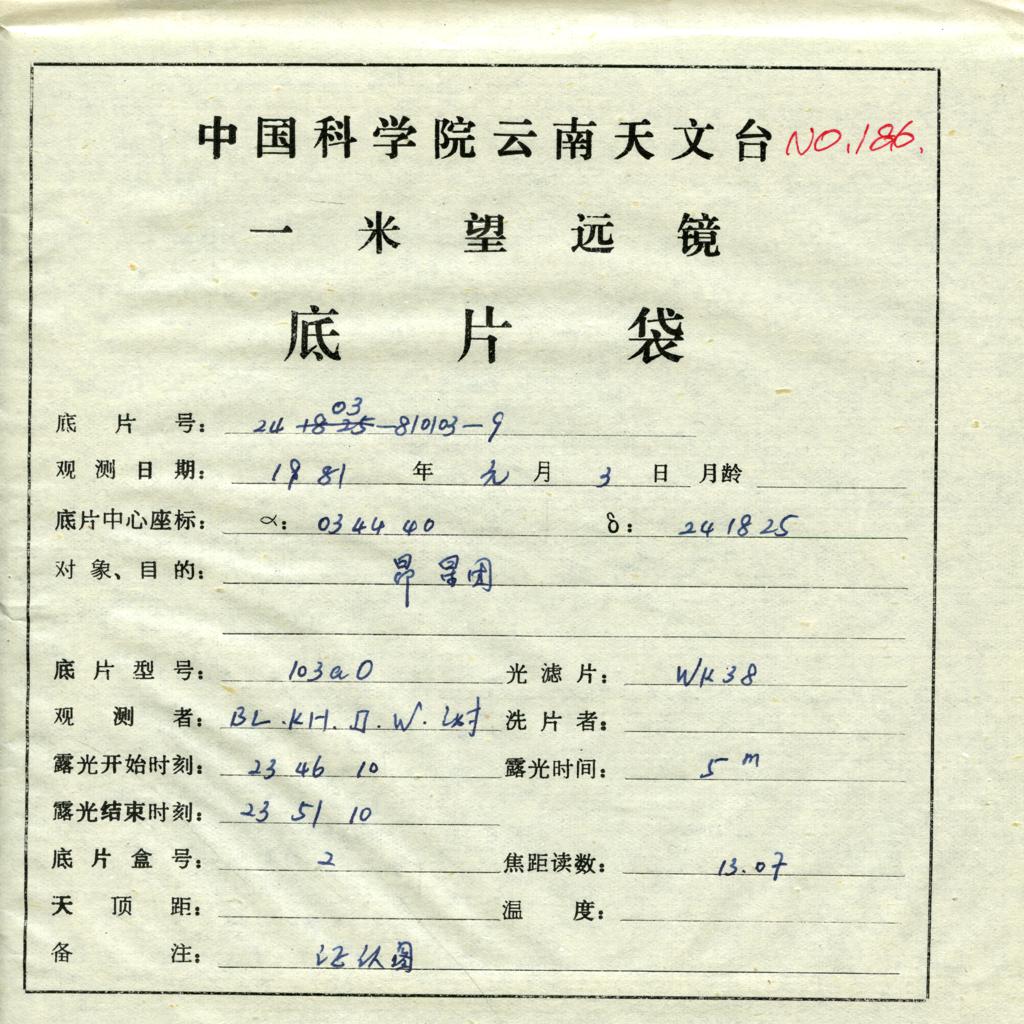 中国科学院云南天文台 NO.186.
一米望远镜
底片袋
03
底片号： 24 +8 25-810103-9
观测日期： 1981 年 元 月 3 日 月龄
底片中心座标： α： 03 44 40 δ： 24 18 25
对象、目的： 昴星团
底片型号： 103aO 光滤片： WK38
观测者： BL.KH.Д.W. 洗片者：
露光开始时刻： 23 46 10 露光时间： 5 m
露光结束时刻： 23 51 10
底片盒号： 2 焦距读数： 13.07
天顶距： 温度：
备注： 证认图